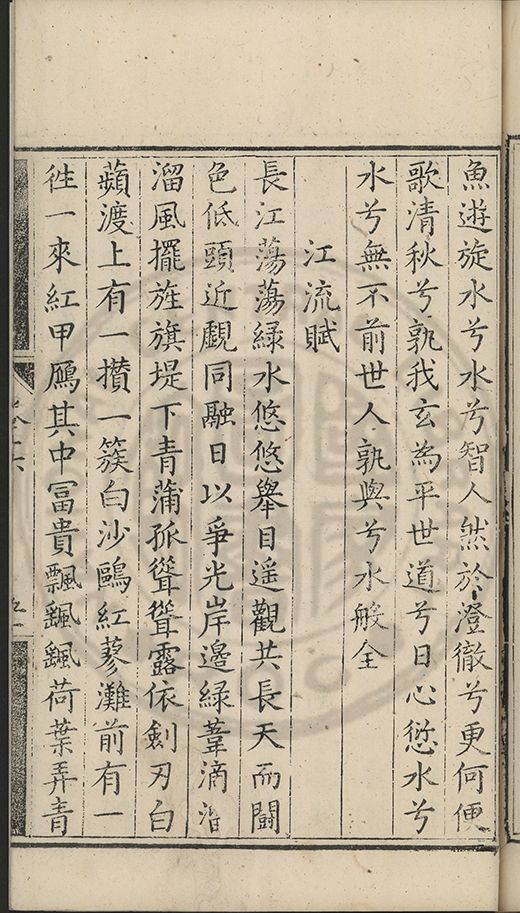 魚遊旋水兮水兮智人然於澄徹兮更何便
歌清秋兮孰我玄為平世道兮日心愆水兮
水兮無不前世人孰與兮水般全
江流賦
長江蕩蕩綠水悠悠舉目遥觀共長天而鬪
色低頭近覷同融日以爭光岸邊綠葦滴㳻
溜風擺旌旗堤下青蒲孤聳聳露依劍刃白
蘋渡上有一攅一簇白沙鷗紅蓼灘前有一
徃一來紅甲鴈其中冨貴飄颻颻荷葉弄青